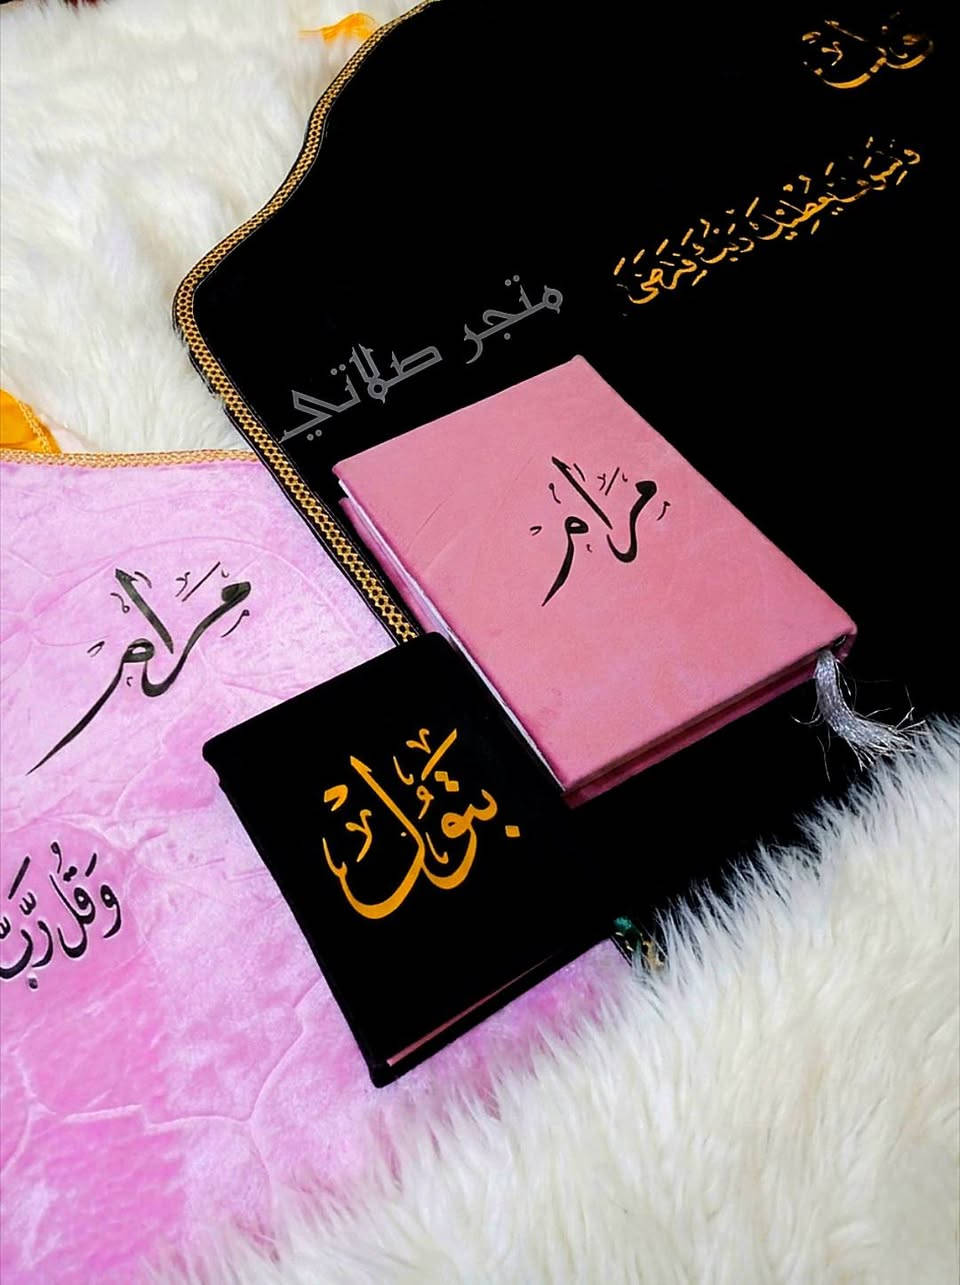 بتول
ولسوف يعطيك ربك فترضى
متجر صلاتي
مرام
مرام
بتول
وَقُل رَّبِّ